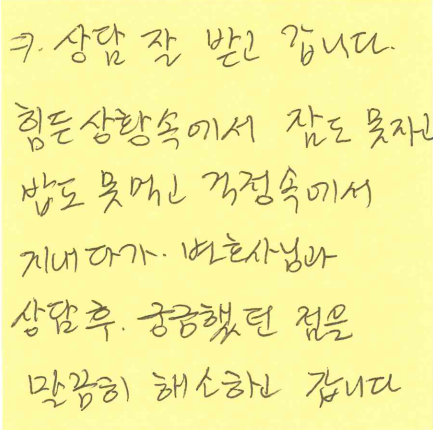 ㅋ. 상담 잘 받고 갑니다.
힘든상황속에서 잠도 못자고
밥도 못먹고 걱정속에서
지내다가. 변호사님과
상담후. 궁금했던 점을
말끔히 해소하고 갑니다